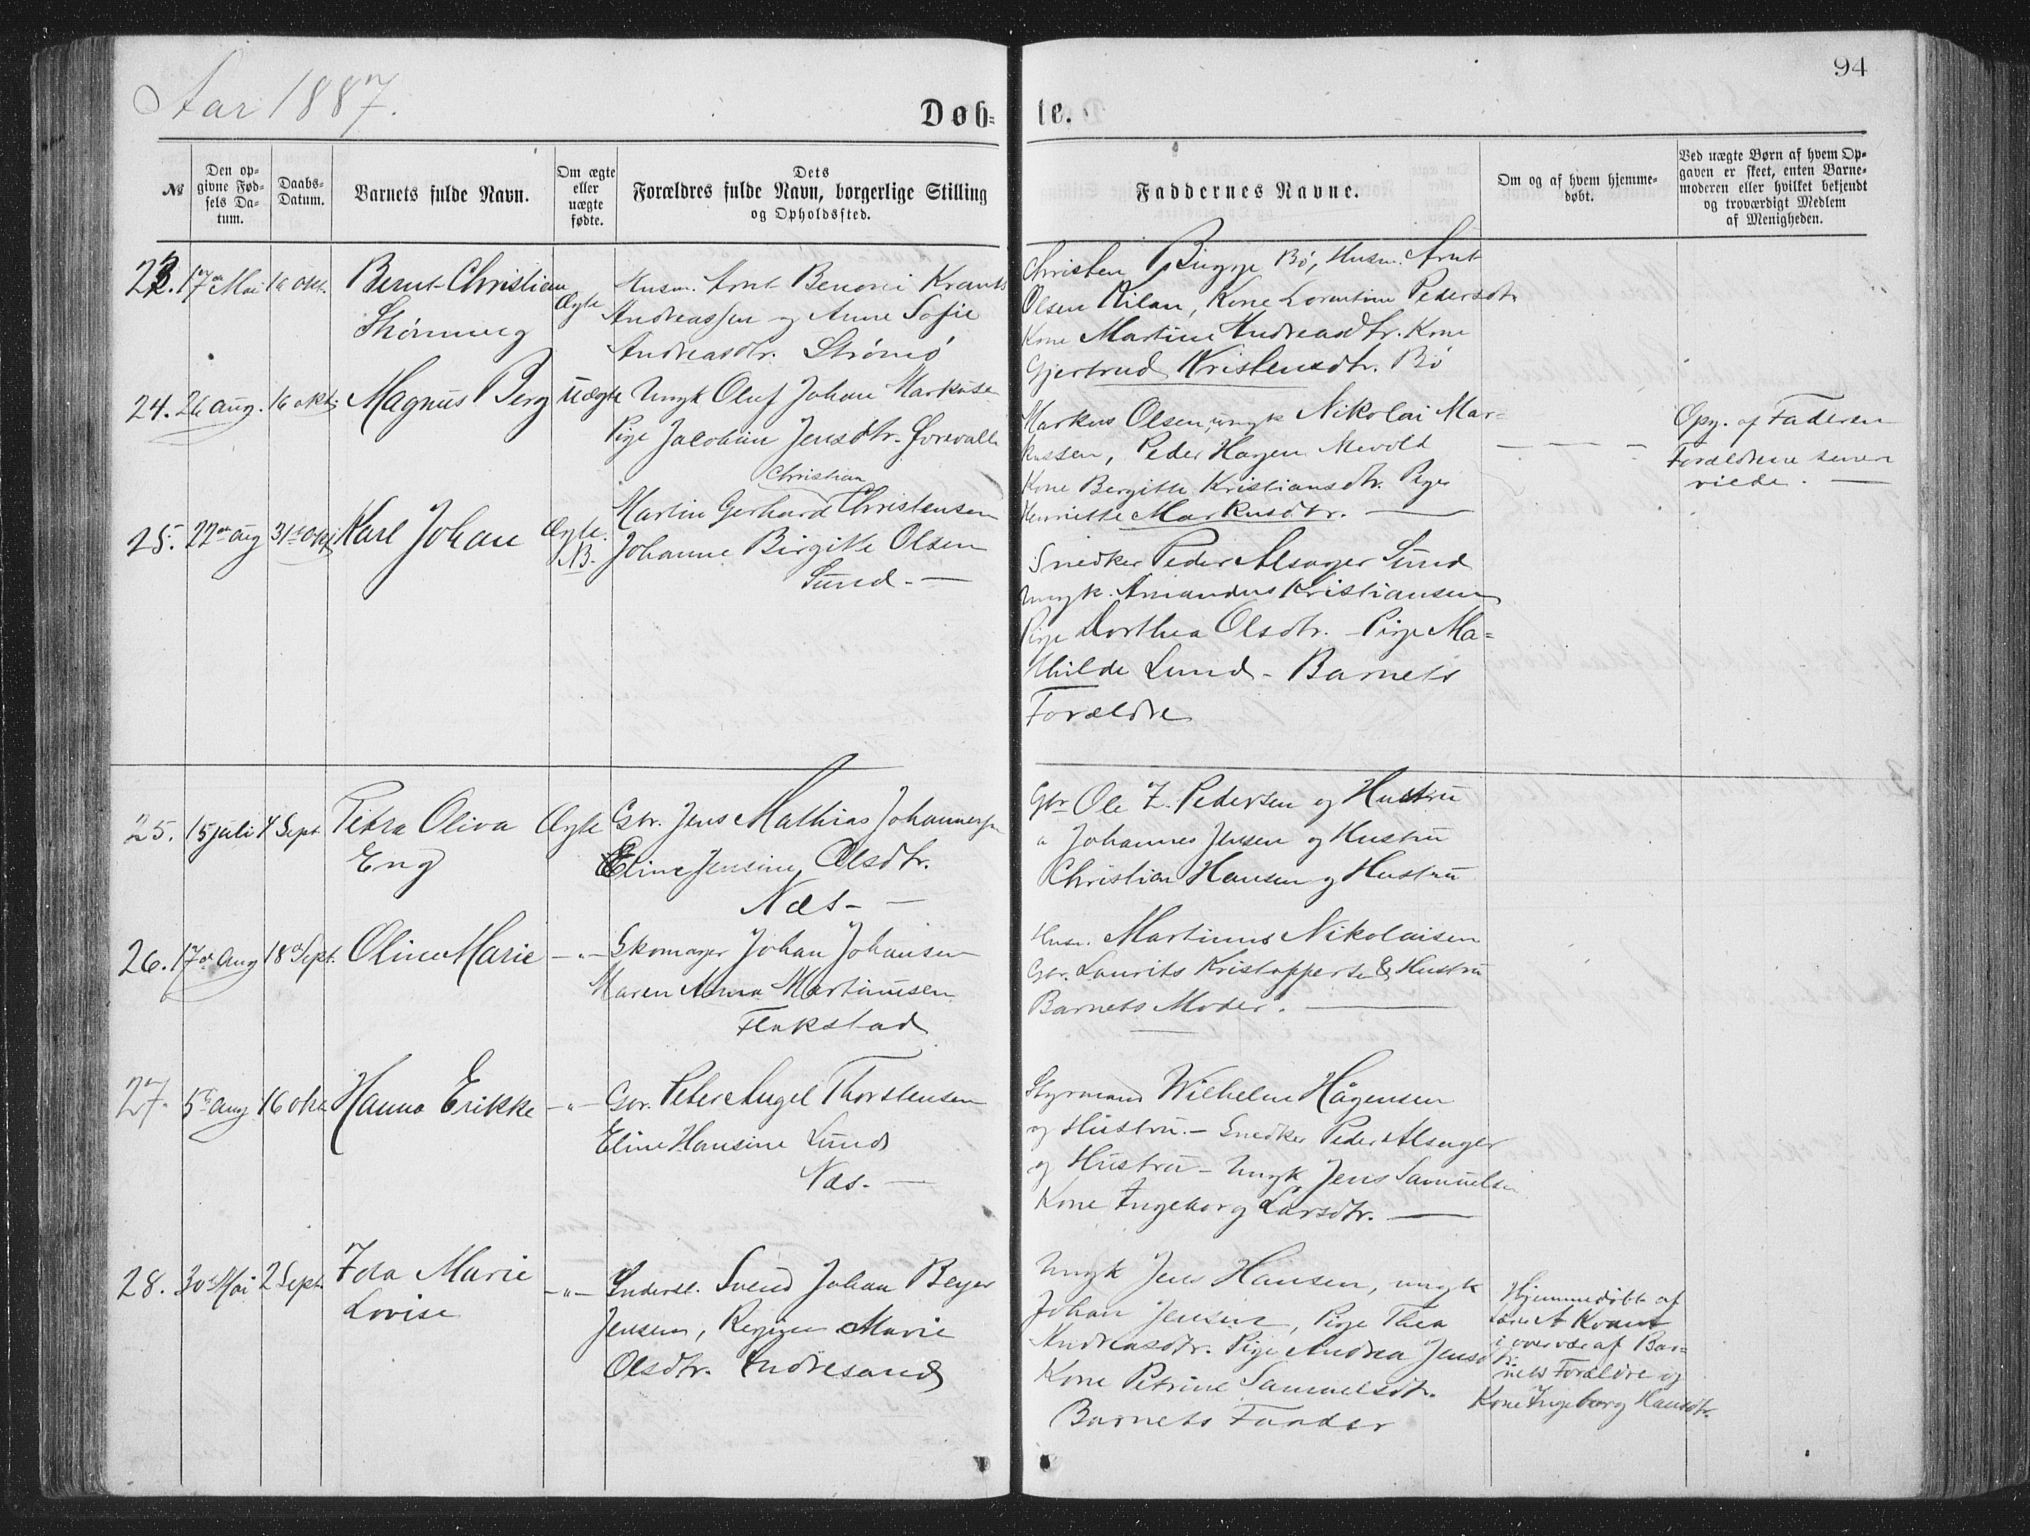 Aar 1887.
94
Døb-
te.
№
Den op-
givne Fød-
sels Da-
tum.
Daabs-
Datum.
Barnets fulde Navn.
Om ægte
eller
uægte
fødte.
Dets
Forældres fulde Navn, borgerlige Stilling
og Opholdssted.
Faddernes Navne.
Om og af hvem hjemme-
døbt.
Ved uægte Børn af hvem Op-
gaven er skeet, enten Barne-
moderen eller hvilket bekjendt
og troværdigt Medlem
af Menigheden.
23. 17de Mai 16 okt. Bernt Christian
Ægte
Husm. Arnt Benoni
Andreassen og Anne Sofie
Andreasdtr. Strømø
Christen Bugge Bø, Husm. Arnt
Olsen Kilan, Kone Lorentine Pedersdtr
Kone Martine Andreasdtr. Kone
Gjertrud Kristensdtr. Bø
24. 26 aug. 16 okt. Magnus Berg
uægte
Ungk Oluf Johan Markuse
Pige Jacobine Jensdtr.
Markus Olsen, ungk Nikolai Mar-
kussen, Peder Hagen
Kone Bergitte Kristiansdtr. Pige
Henriette Markusdtr. —
Opg. af Faderen
Forældrene senere
viede. —
25. 22de aug 31te okt Karl Johan
Ægte.
N.B.
Christian
Martin Gerhard Christensen
Johanne Birgitte Olsen
Sund. —
Snedker Peder Alsager Sund
ungk. Amandus Kristiansen
Pige Dorthea Olsdtr. Pige Ma-
thilde Lund - Barnets
Forældre
25. 15 juli 4 Sept Petra Oliva
Eng
Ægte
Gbr. Jens Mathias Johannesen
Eline Jensine Olsdtr.
Næs — —
Gbr Ole Z. Pedersen og Hustru
" Johannes Jensen og Hustru
Christian Hansen og Hustru
26. 17de Aug 18de Sept. Oline Marie
— " —
Skomager Johan Johansen
Maren Anna Martinusen
Flakstad
Husm. Martinus Nikolaisen
Gbr. Laurits Kristoffersen & Hustru
Barnets Moder. —
27. 5te aug 16 okt. Hanna Erikke
— " —
Gbr. Peter Angel Thorstensen
Eline Hansine Lund
Næs. —
Styrmand Wilhelm Hågensen
og Hustru. — Snedker Peder Alsager
og Hustru — Ungk Jens Samuelsen
Kone Ingeborg Larsdtr. —
28. 30te Mai 2 Sept. Ida Marie
Lovise
— " —
Svend Johan Beyer
Jensen, Marie
Olsdtr. Andresand
Ungk Jens Hansen, ungk
Johan Jensen, Pige Thea
Andreasdtr. Pige Andrea Jensd
Kone Petrine Samuelsdtr.
Barnets Fander
Hjemmedøbt af
i overvær af Bar-
nets Forældre og
Kone Ingeborg Hansdtr.